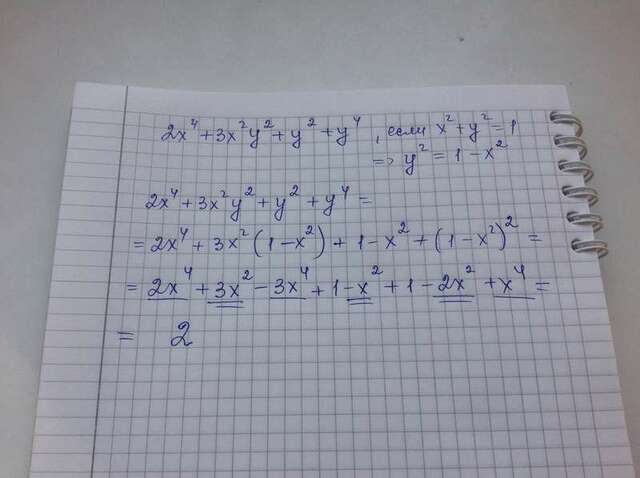 2x⁴+3x²y²+y²+y⁴, если x²+y²=1
=> y²=1-x²
2x⁴+3x²y²+y²+y⁴=
=2x⁴+3x²(1-x²)+1-x²+(1-x²)²=
=2x⁴+3x²-3x⁴+1-x²+1-2x²+x⁴=
= 2